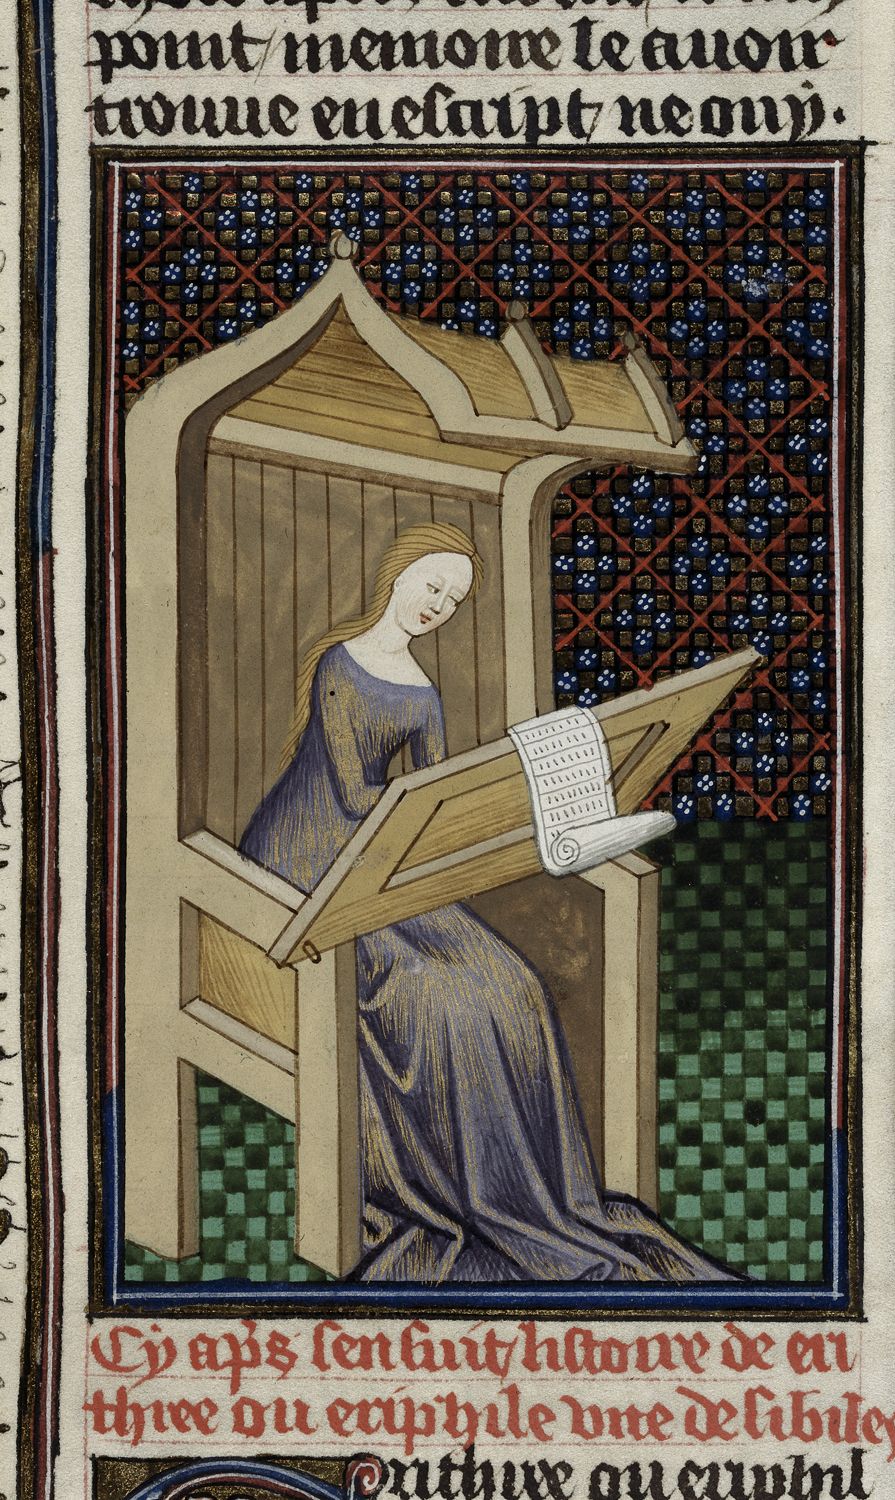 point/ memoire le auoir
trouue en escript/ ne ony.
Cy apͬs senſuit/ listoire de eri
three ou eriphile vne de sibiles
Erithree ou eriphil